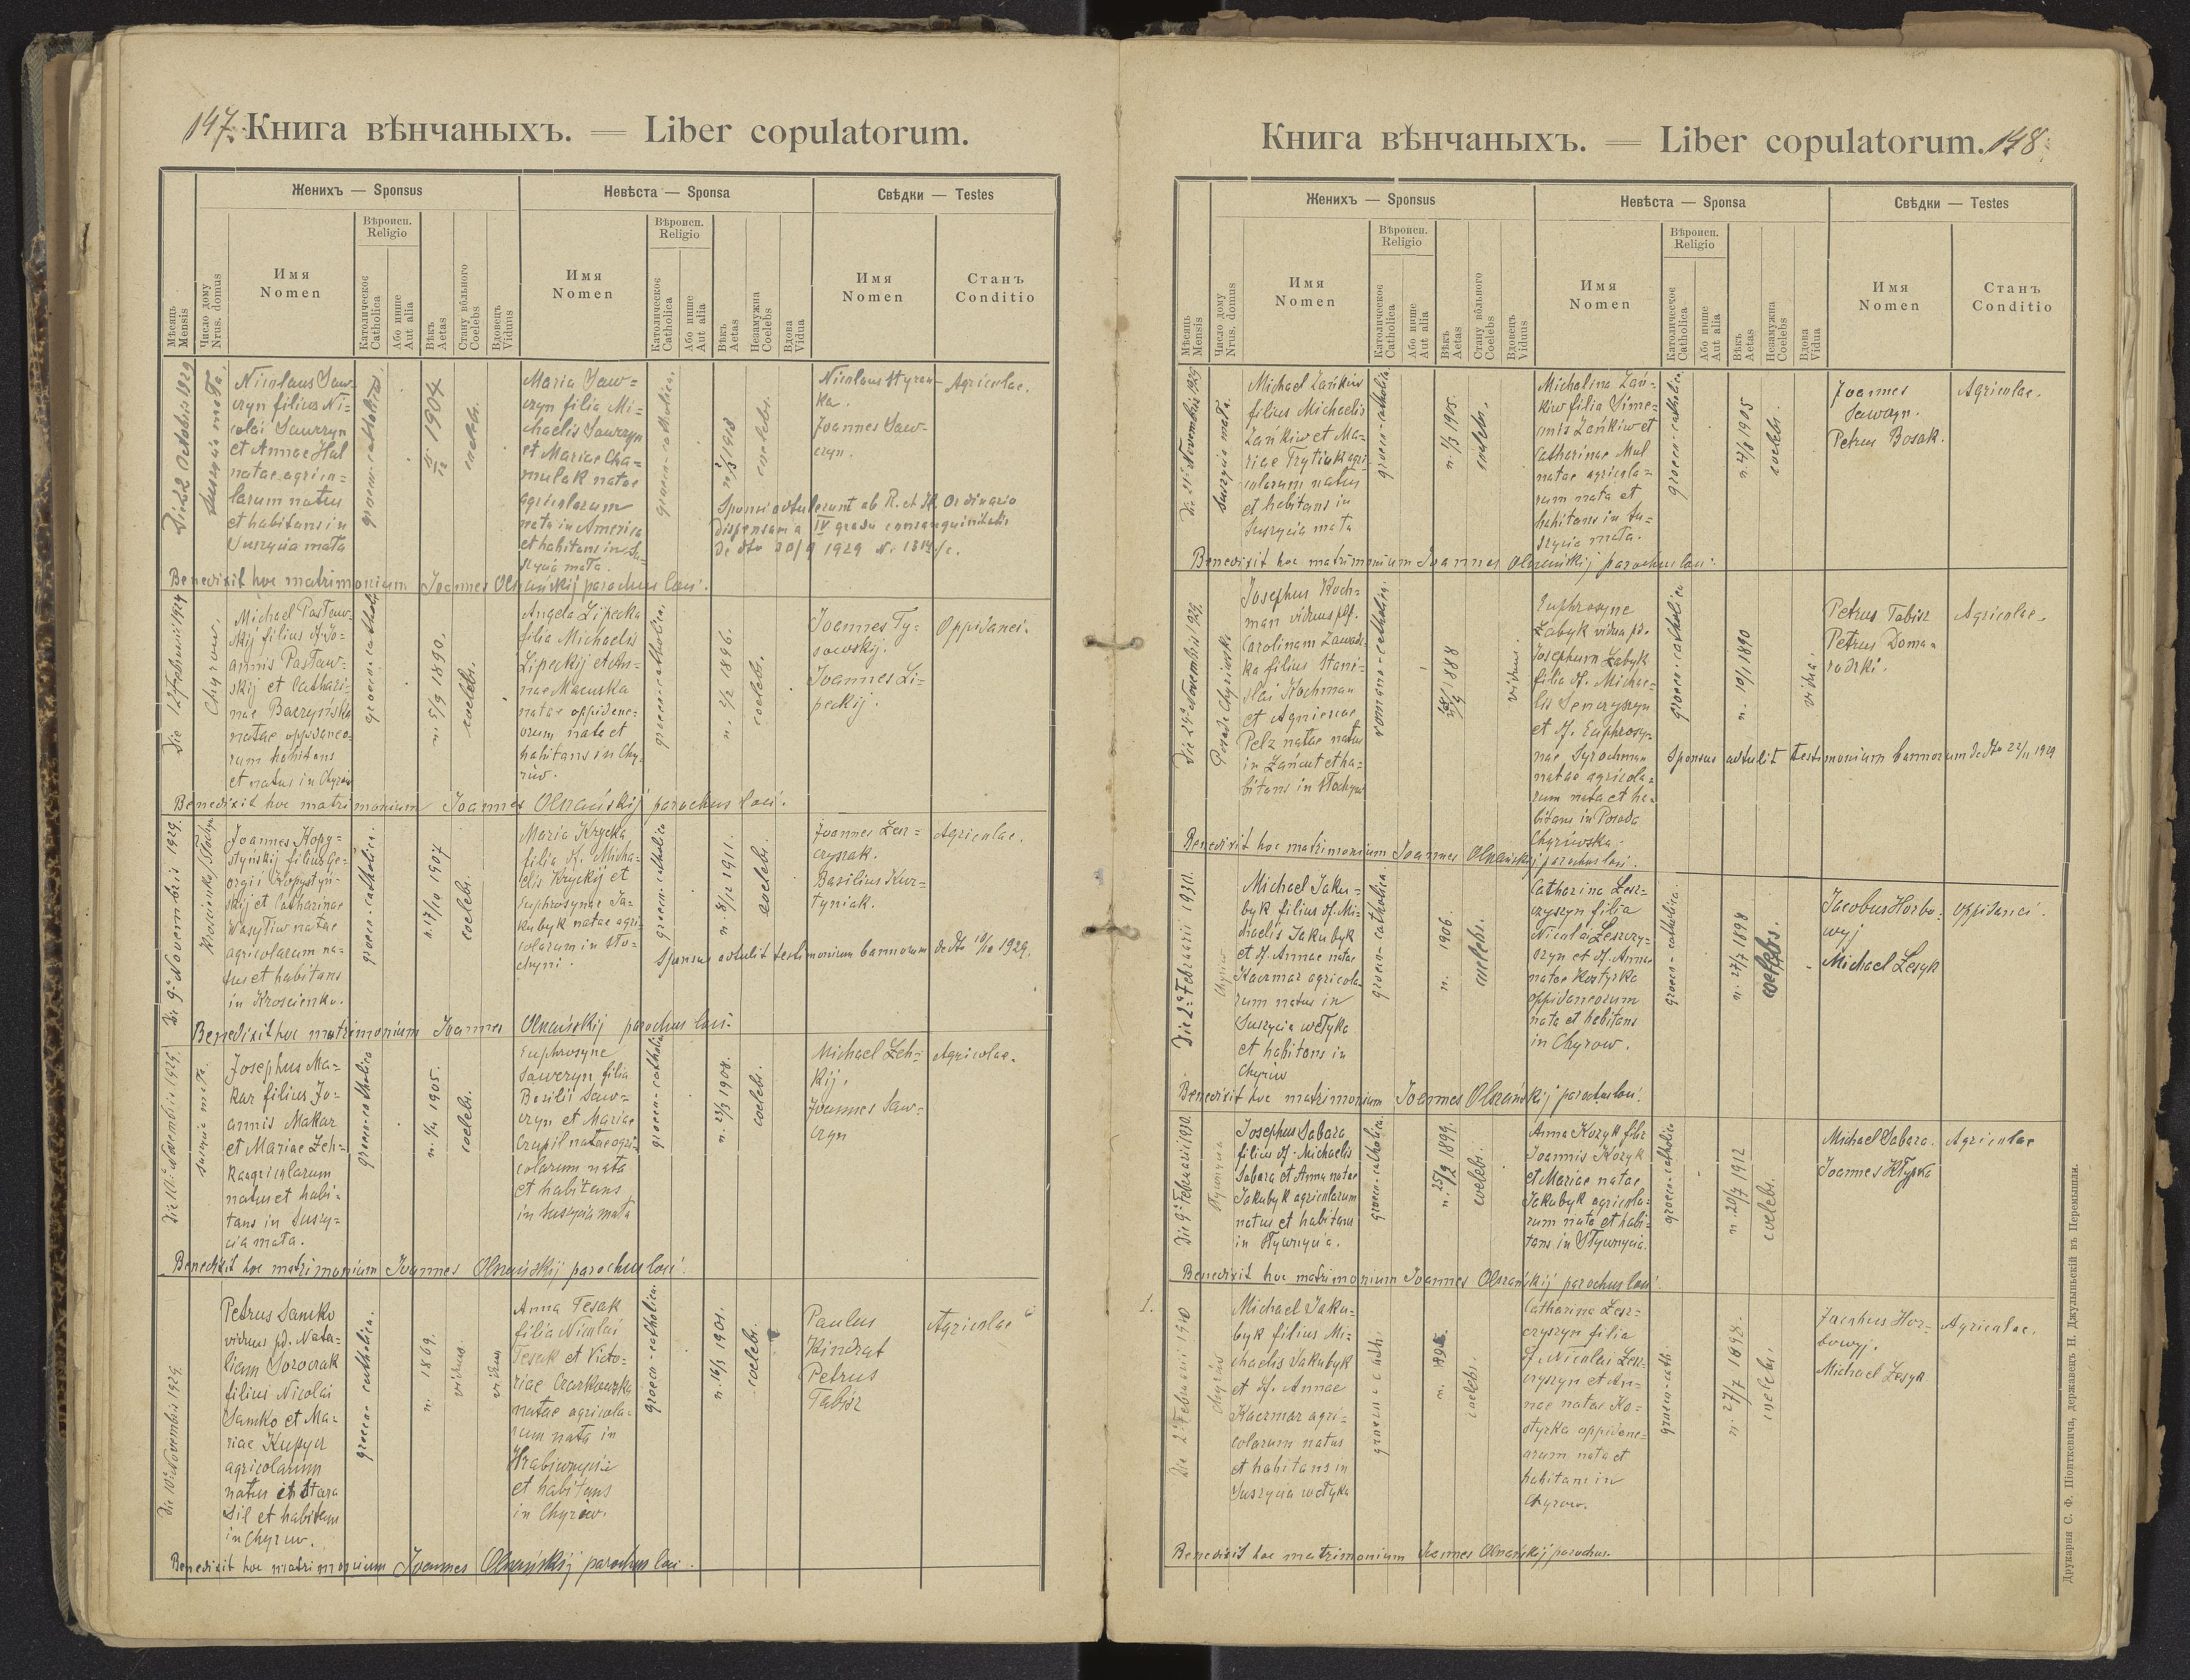 147. Книга вѣнчаныхъ. — Liber copulatorum.
Женихъ — Sponsus
Невѣста — Sponsa
Свѣдки — Testes
Мѣсяць Mensis
Число дому Nrus. domus
Имя Nomen
Вѣроисп. Religio
Католическое Catholica
Або инше Aut alia
Вѣкъ Aetas
Стану вôльного Coelebs
Вдовець Viduus
Имя Nomen
Вѣроисп. Religio
Католическое Catholica
Або инше Aut alia
Вѣкъ Aetas
Незамужна Coelebs
Вдова Vidua
Имя Nomen
Станъ Conditio
Die 22 Octobris 1929
Suszycia mała.
Nicolaus Saw-
czyn filius Ni=
colai Sawczyn
et Annae Hul
natae agrico=
larum natus
et habitans in
Suszycia mała
graeco-catholica.
1904
coelebs.
Maria Saw=
czyn filia Mi=
chaelis Sawczyn
et Mariae Cha=
mulak natae
agricolarum
nata in America
et habitans in Su=
szycia mała.
graeco-catholica.
coelebs.
Nicolaus Styran-
ka.
Joannes Saw-
czyn.
Agricolae.
Sponsi adtulerunt ab R. et Il. Ordinario
dispensam a IV gradu consanguinitatis
de dto 20/9 1929 N.
Benedixit hoc matrimonium Joannes Olszańskij parochus loci.
Chyrow.
Michael Pasław-
skij filius d. Jo=
annis Pasław-
skij et Cathari=
nae Baczyńska
natae oppidaneo-
rum habitans
et natus in Chyrów
graeco-cathol.
n. 5/9 1890.
coelebs.
Angela Lipecka
filia Michaelis
Lipeckij et An-
nae Macuska
natae oppidane=
orum nata et
habitans in Chy-
rów.
graeco-catholica.
n. 2/2 1896.
coelebs.
Joannes Ty-
sowskij.
Joannes Li-
peckij.
Oppidanei.
Benedixit hoc matrimonium Joannes Olszańskij parochus loci.
Die 9o Novembris 1929.
Kroscienko/Słochyni
Joannes Kopy=
styńskij filius Ge=
orgii Kopystyń-
skij et Catharinae
Wasyliw natae
agricolarum na-
tus et habitans
in Kroscienko.
graeco-catholica.
n. 17/10 1907
coelebs.
Maria Krycka
filia d. Micha-
elis Kryckij et
Euphrosynae Ja-
kubyk natae agri-
colarum in Sło-
chyni.
graeco-catholica
n. 8/12 1911.
coelebs.
Joannes Lesz=
czyszak.
Basilius Kur-
tyniak.
Agricolae.
Sponsus adtulit testimonium bannorum de dto 10/10 1929.
Benedixit hoc matrimonium Joannes Olszańskij parochus loci.
Die 10o Novembris 1929.
Josephus Ma=
kar filius Jo-
annis Makar
et Mariae Zeh=
ka agricolarum
natus et habi-
tans in Suszy=
cia mała.
graeco-catholica
1905.
coelebs.
Euphrosyne
Sawczyn filia
Basilii Saw=
czyn et Mariae
Czupil natae agri=
colarum nata
et habitans
in Suszycia mała
graeco-catholica
1908.
coelebs.
Michael Zeh-
kij.
Joannes Saw-
czyn
Agricolae.
Benedixit hoc matrimonium Joannes Olszańskij parochus loci.
Die 10o Novembris 1929.
Petrus Samko
viduus pd. Nata-
liam Soroczak
filius Nicolai
Samko et Ma-
riae Kupycz
agricolarum
natus in Stara
Sil et habitans
in Chyrow.
graeco-catholica.
n. 1869.
viduus
viduus
Anna Tesak
filia Nicolai
Tesak et Victo-
riae Czarkowska
natae agricola-
rum nata in
et habitans
in Chyrów.
graeco-catholica.
n. 16/3 1901.
coelebs.
Paulus
Kindrat
Petrus
Tabisz
Agricolae
Benedixit hoc matrimonium Joannes Olszańskij parochus loci.
Книга вѣнчаныхъ. — Liber copulatorum. 148.
Женихъ — Sponsus
Невѣста — Sponsa
Свѣдки — Testes
Мѣсяць Mensis
Число дому Nrus. domus
Имя Nomen
Вѣроисп. Religio
Католическое Catholica
Або инше Aut alia
Вѣкъ Aetas
Стану вôльного Coelebs
Вдовець Viduus
Имя Nomen
Вѣроисп. Religio
Католическое Catholica
Або инше Aut alia
Вѣкъ Aetas
Незамужна Coelebs
Вдова Vidua
Имя Nomen
Станъ Conditio
Suszycia mała.
Michael Zańkiw
filius Michaelis
Zańkiw et Ma-
riae Frytiuk agri-
colarum natus
et habitans in
Suszycia mała
graeco-catholica
n. 1/3 1905.
coelebs.
Michalina Zań-
kiw filia Sime-
onis Zańkiw et
Catharinae Mul
natae agricola=
rum nata et
habitans in Su=
szycia mała.
graeco-catholica
1905
coelebs.
Joannes
Sawczyn.
Petrus Bosak.
Agricolae.
Benedixit hoc matrimonium Joannes Olszańskij parochus loci.
Die 24o Novembris 1929.
Posada Chyriwska
Josephus Koch-
man viduus pd.
Carolinam Zawadz-
ka filius Stani-
slai Kochman
et Agnescae
Pelz natae natus
in Łańcut et ha-
bitans in Słochyni
romano-catholica
1888
viduus.
Euphrosyne
Łabyk vidua pd.
Josephum Łabyk
filia d. Michae-
lis Senczyszyn
et d. Euphrosy-
nae Syrochman
natae agricola-
rum nata et ha-
bitans in Posada
Chyriwska.
graeco-catholica
n. 10/1 1890
vidua.
Petrus Tabisz
Petrus Doma-
radzki.
Agricolae.
Sponsus adtulit testimonium bannorum de dto 22/11 1929
Benedixit hoc matrimonium Joannes Olszańskij parochus loci.
Die 2o Februarii 1930.
Chyrow
Michael Jaku=
byk filius d. Mi-
chaelis Jakubyk
et d. Annae natae
Kaczmar agricola-
rum natus in
Suszycia wełyka
et habitans in
Chyrów
graeco-catholica.
n. 1906.
coelebs.
Catharina Lesz-
czyszyn filia
Nicolai Leszczy-
szyn et d. Annae
natae Kostyrka
oppidaneorum
nata et habitans
in Chyrow.
graeco-catholica.
n. 27/7 1898
coelebs.
Jacobus Horbo-
wyj
Michael Lesyk
oppidanei.
Benedixit hoc matrimonium Joannes Olszańskij parochus loci.
Die 9o Februarii 1930.
Josephus Sabara
filius d. Michaelis
Sabara et Anna natae
Jakubyk agricolarum
natus et habitans
in Sływnycia.
graeco-catholica.
1899.
coelebs.
Anna Kozyk filia
Joannis Kozyk
et Mariae natae
Jakubyk agricola-
rum nata et habi-
tans in Sływnycia.
graeco-catholica
n. 20/7 1912
coelebs.
Michael Sabara.
Joannes Kłypka
Agricolae
Benedixit hoc matrimonium Joannes Olszańskij parochus loci.
1.
Die 2o Februarii 1930
Chyrów
Michael Jaku-
byk filius Mi-
chaelis Jakubyk
et d. Annae
Kaczmar agri-
colarum natus
et habitans in
Suszycia wełyka
graeco-cath.
coelebs.
Catharina Lesz-
czyszyn filia
d. Nicolai Lesz-
czyszyn et An-
nae natae Ko-
styrka oppidane-
orum nata et
habitans in
Chyrow.
graeco-cath.
n. 27/7 1898.
coelebs.
Jacobus Hor-
bowyj.
Michael Lesyk
Agricolae.
Benedixit hoc matrimonium Joannes Olszańskij parochus.
Друкарня С. Ф. Піонткевича, державець Н. Джулыньскій въ Перемышли.